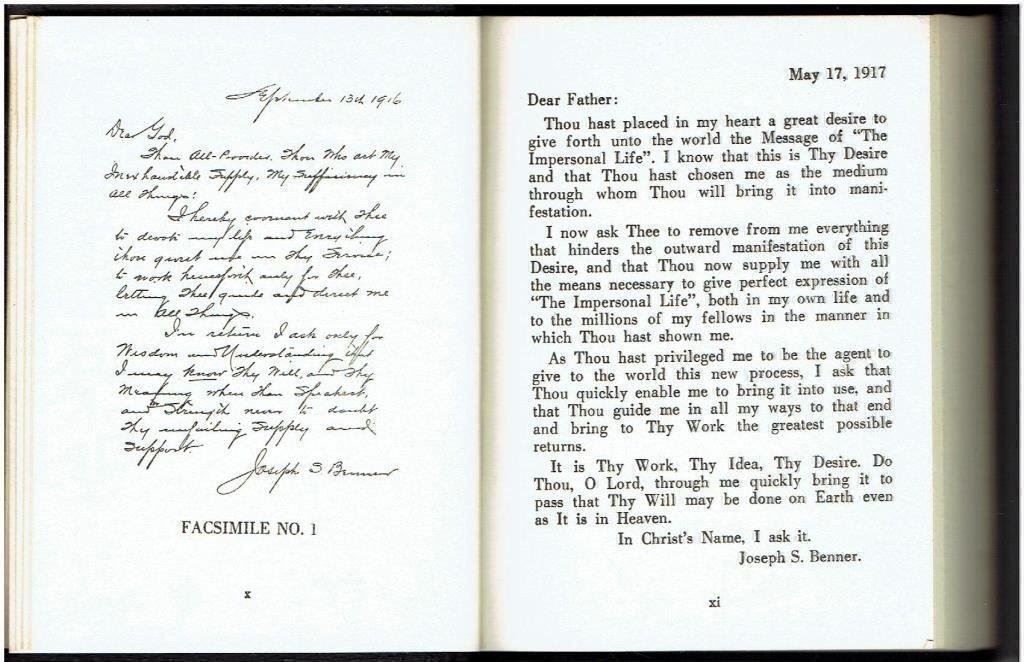 September 13th 1916
Dear God,
Thou All-Provider, Thou Who art My
Inexhaustible Supply, My Sufficiency in
All Things!
I hereby covenant with Thee
to devote my life and Everything
Thou givest me in Thy Service;
to work henceforth only for Thee,
letting Thee guide and direct me
in All Things.
In return I ask only for
Wisdom and Understanding that
I may know Thy Will, and Thy
Meaning when Thou Speakest,
and Strength never to doubt
Thy unfailing Supply and
Support.
Joseph S Benner
FACSIMILE NO. 1
x
May 17, 1917
Dear Father:
Thou hast placed in my heart a great desire to
give forth unto the world the Message of “The
Impersonal Life”. I know that this is Thy Desire
and that Thou hast chosen me as the medium
through whom Thou will bring it into mani-
festation.
I now ask Thee to remove from me everything
that hinders the outward manifestation of this
Desire, and that Thou now supply me with all
the means necessary to give perfect expression of
“The Impersonal Life”, both in my own life and
to the millions of my fellows in the manner in
which Thou hast shown me.
As Thou hast privileged me to be the agent to
give to the world this new process, I ask that
Thou quickly enable me to bring it into use, and
that Thou guide me in all my ways to that end
and bring to Thy Work the greatest possible
returns.
It is Thy Work, Thy Idea, Thy Desire. Do
Thou, O Lord, through me quickly bring it to
pass that Thy Will may be done on Earth even
as It is in Heaven.
In Christ's Name, I ask it.
Joseph S. Benner.
xi